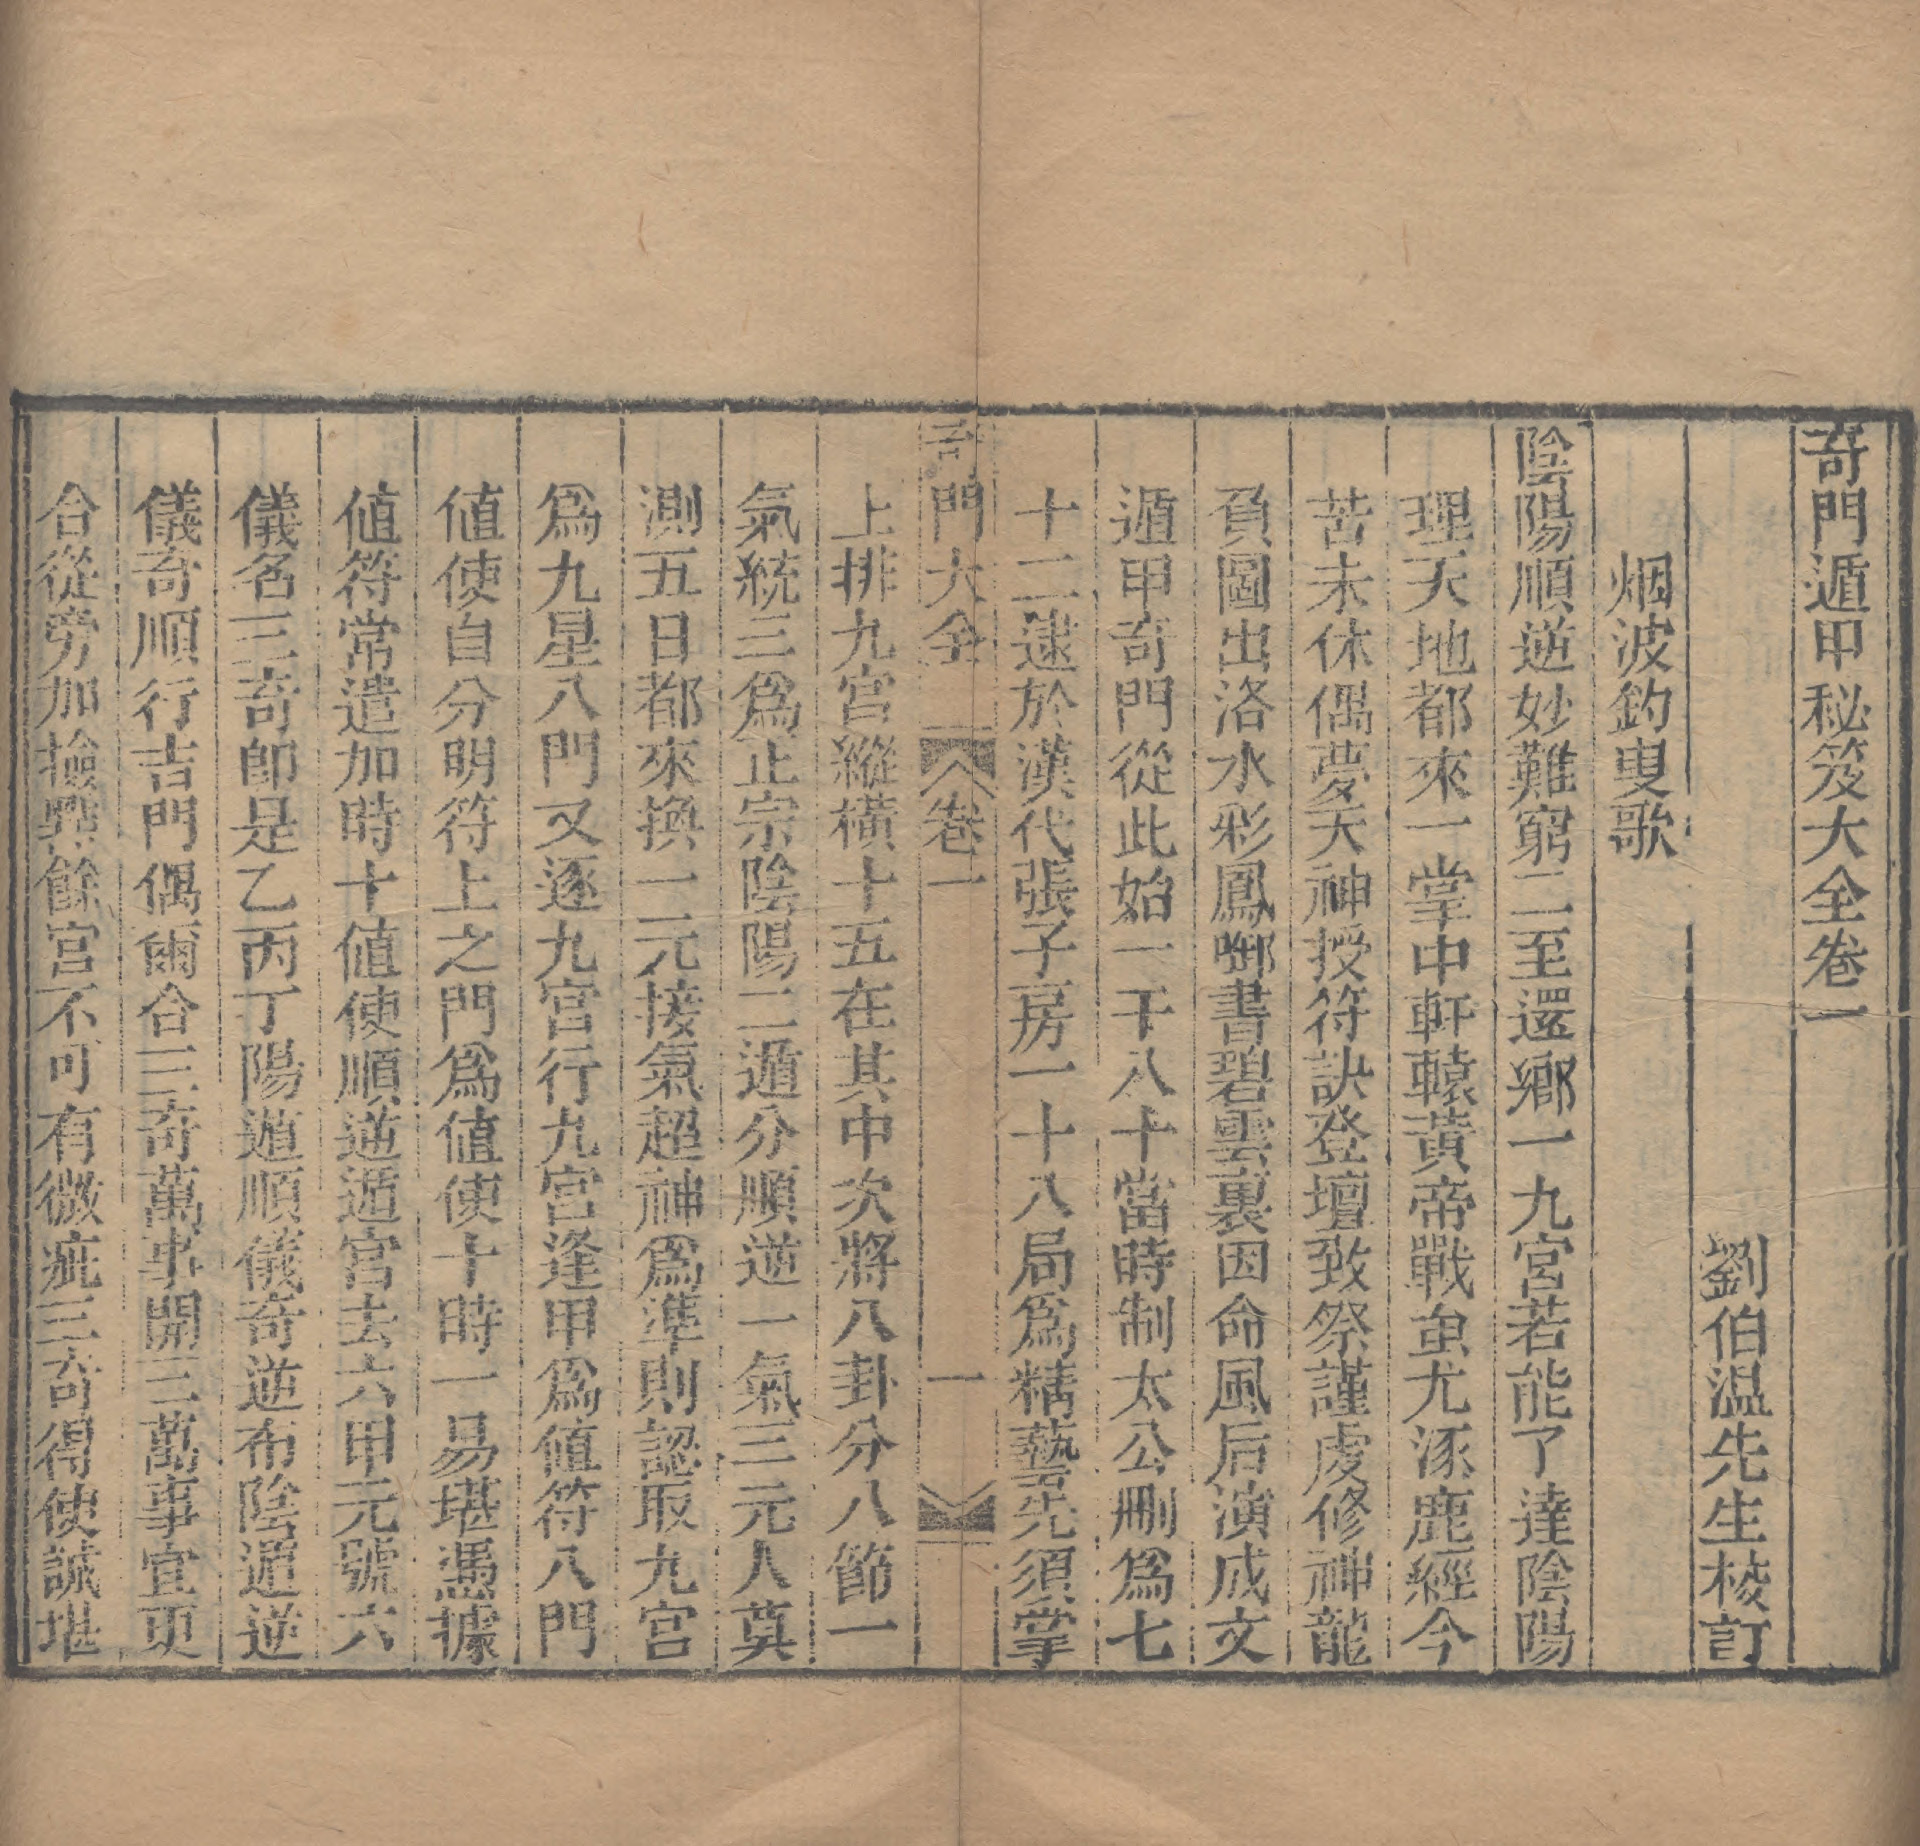 奇門遁甲秘笈大全卷一
劉伯温先生校訂
烟波釣叟歌
陰陽順逆妙難窮二至還鄉一九宮若能了達陰陽
理天地都來一掌中軒轅黃帝戰蚩尤涿鹿經今
苦未休偶夢天神授符訣登壇致祭謹虔修神龍
負圖出洛水彩鳳啣書碧雲裏因命風后演成文
遁甲奇門從此始一千八十當時制太公刪為七
十二逮於漢代張子房一十八局為精藝先須掌
奇門大全 卷一 一
上排九宮縱橫十五在其中次將八卦分八節一
氣統三為正宗陰陽二遁分順逆一氣三元人莫
測五日都來換一元接氣超神為準則認取九宮
為九星八門又逐九宮行九宮逢甲為値符八門
値使自分明符上之門為値使十時一易堪憑據
値符常遣加時十値使順逆遁宮去六甲元號六
儀名三奇即是乙丙丁陽遁順儀奇逆布陰遁逆
儀奇順行吉門偶爾合三奇萬事開三萬事宜更
合從旁加撿點餘宮不可有微疵三奇得使誠堪